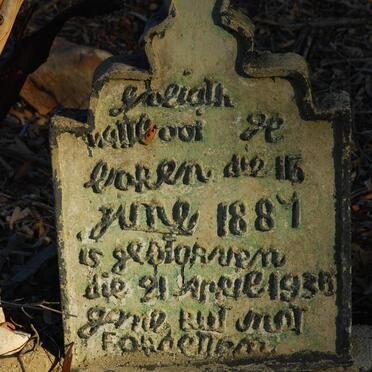 Goliath
walldoot ge
boren die 16
June 1887
is gestorven
die 21 April 1938
gone but not
Forgotten.